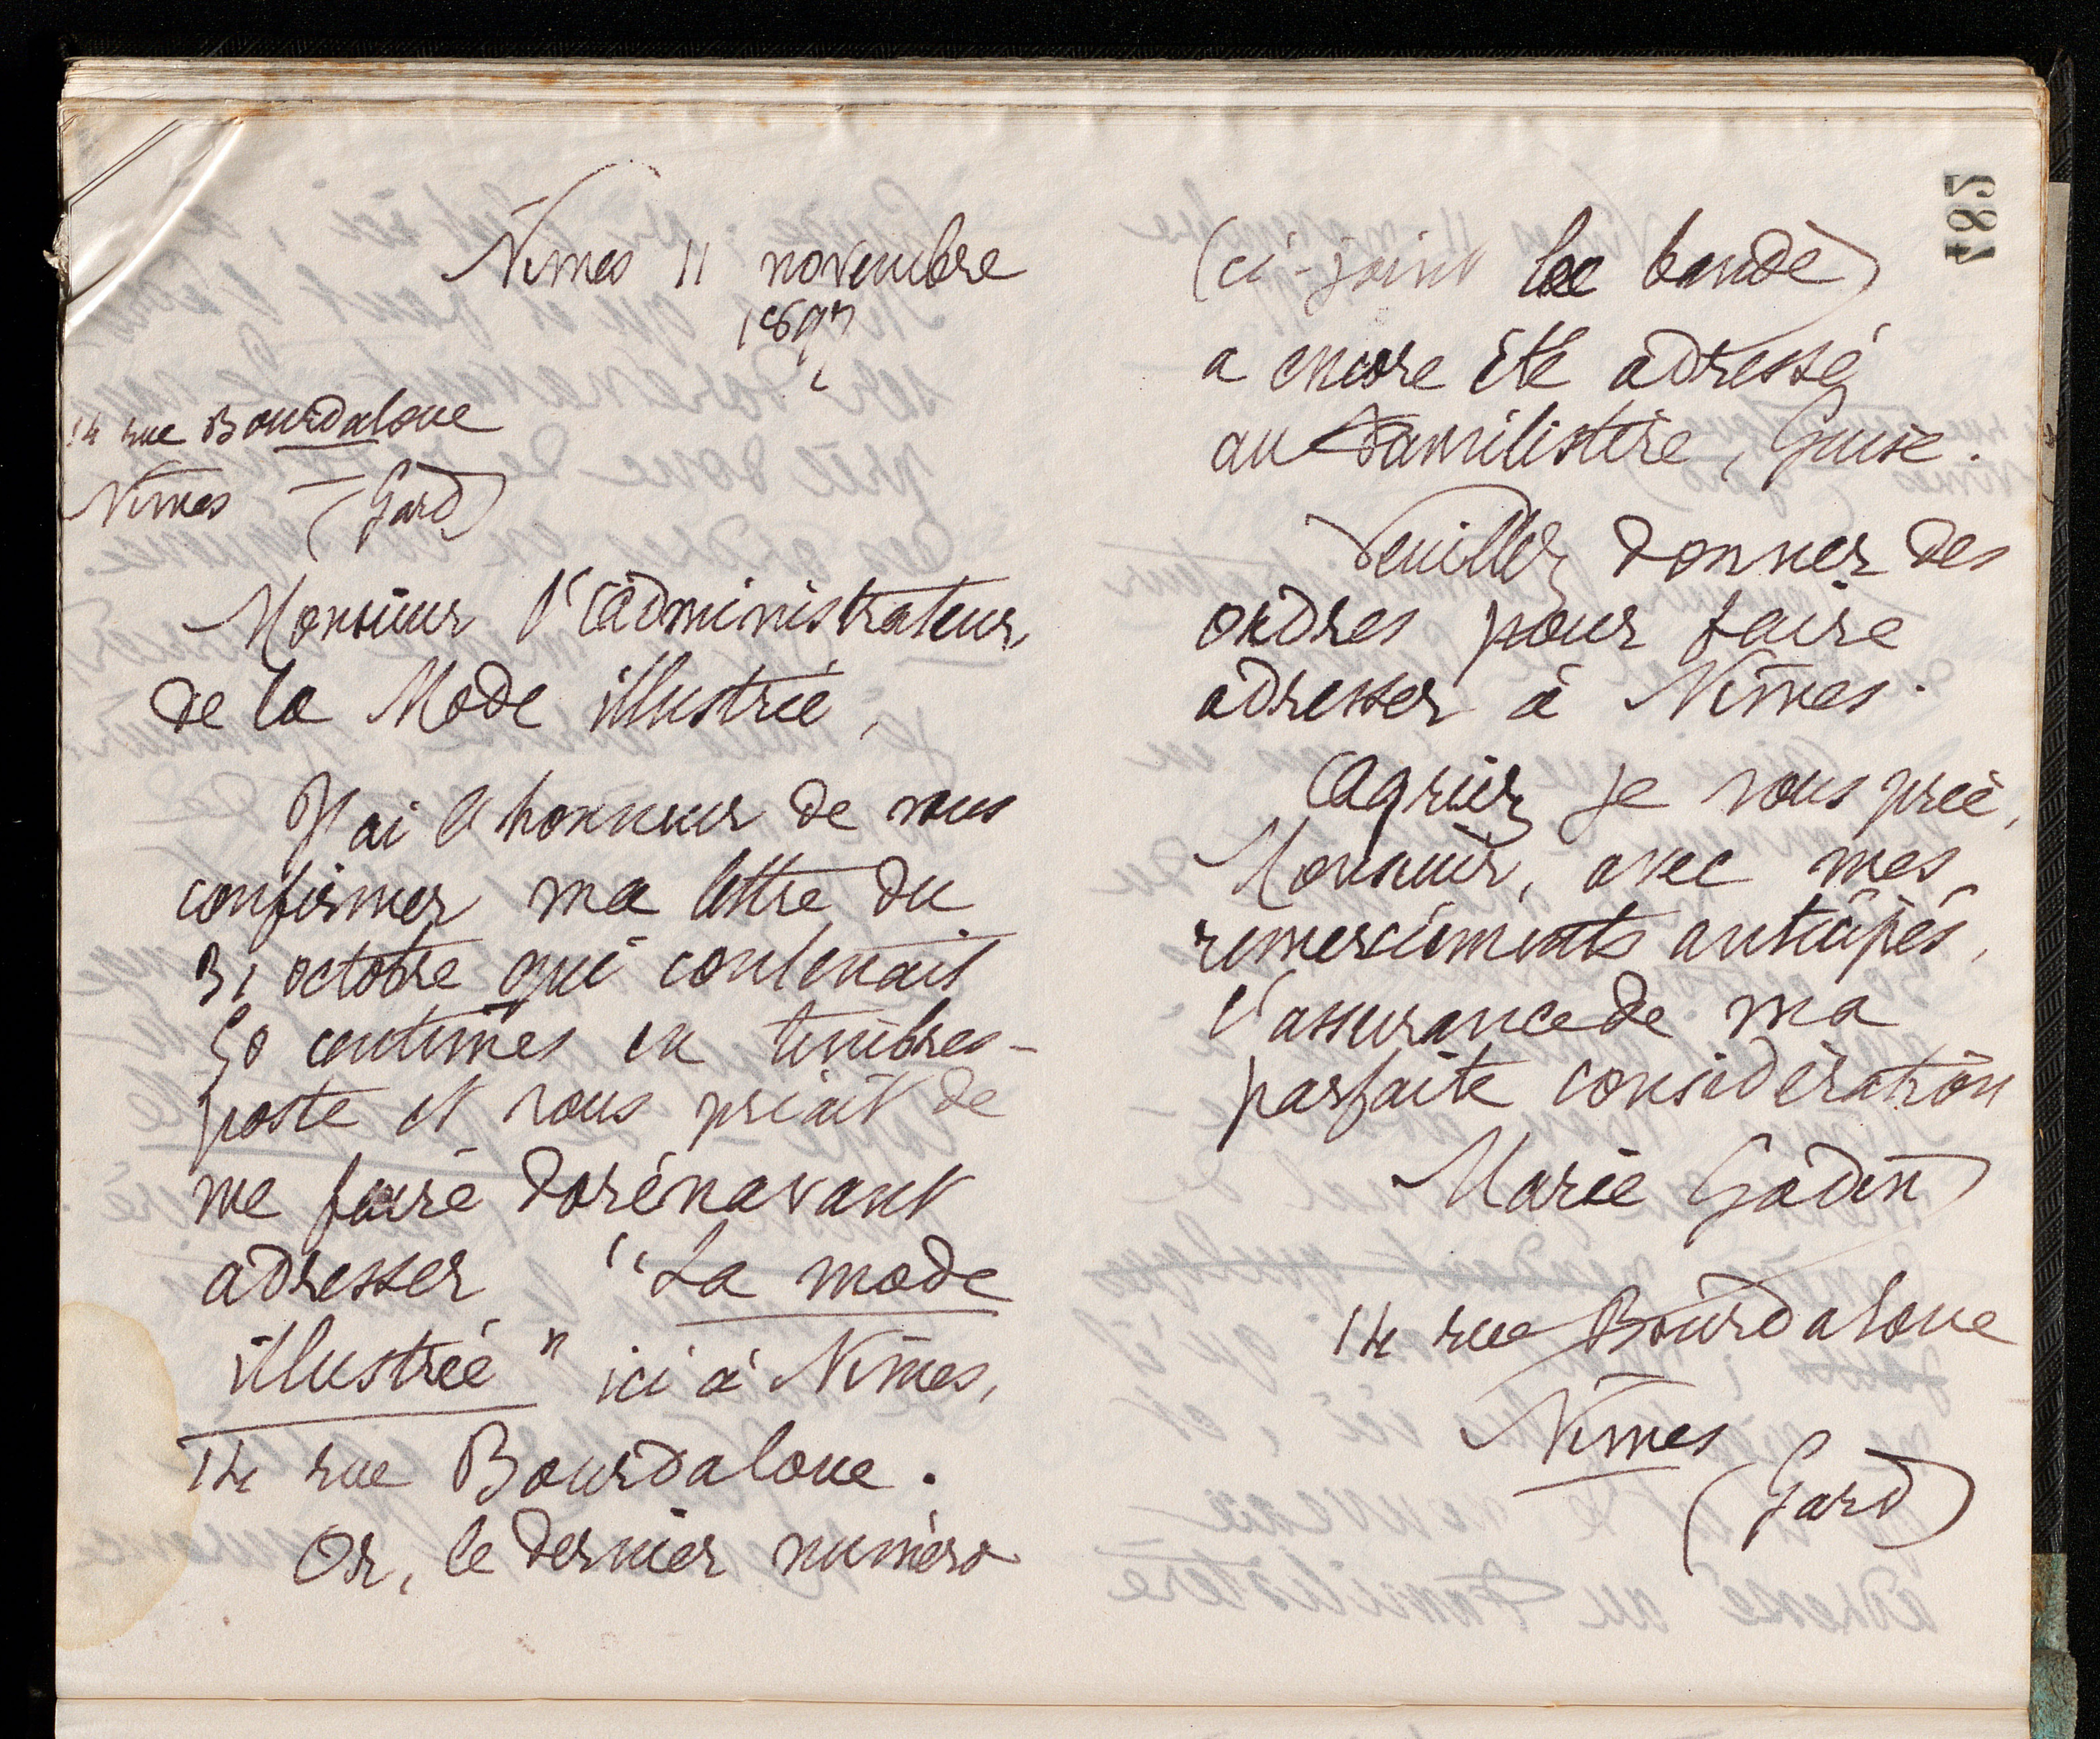 Nîmes 11 novembre
1897
14 rue Bourdaloue
Nîmes (Gard)
Monsieur l'administrateur
de la Mode illustrée,
J'ai l'honneur de vous
confirmer ma lettre du
31 octobre qui contenait
50 centimes en timbres-
poste et vous priait de
me faire dorénavant
adresser "La mode
illustrée" ici à Nîmes,
14 rue Bourdaloue.
Or, le dernier numéro
(ci-joint la bande)
a encore été adressé
au Familistère, Guise.
Veuillez donner des
ordres pour faire
adresser à Nîmes.
Agréez je vous prie,
Monsieur, avec mes
remerciements anticipés,
l'assurance de ma
parfaite considération
Marie Godin
14 rue Bourdaloue
Nîmes
(Gard)